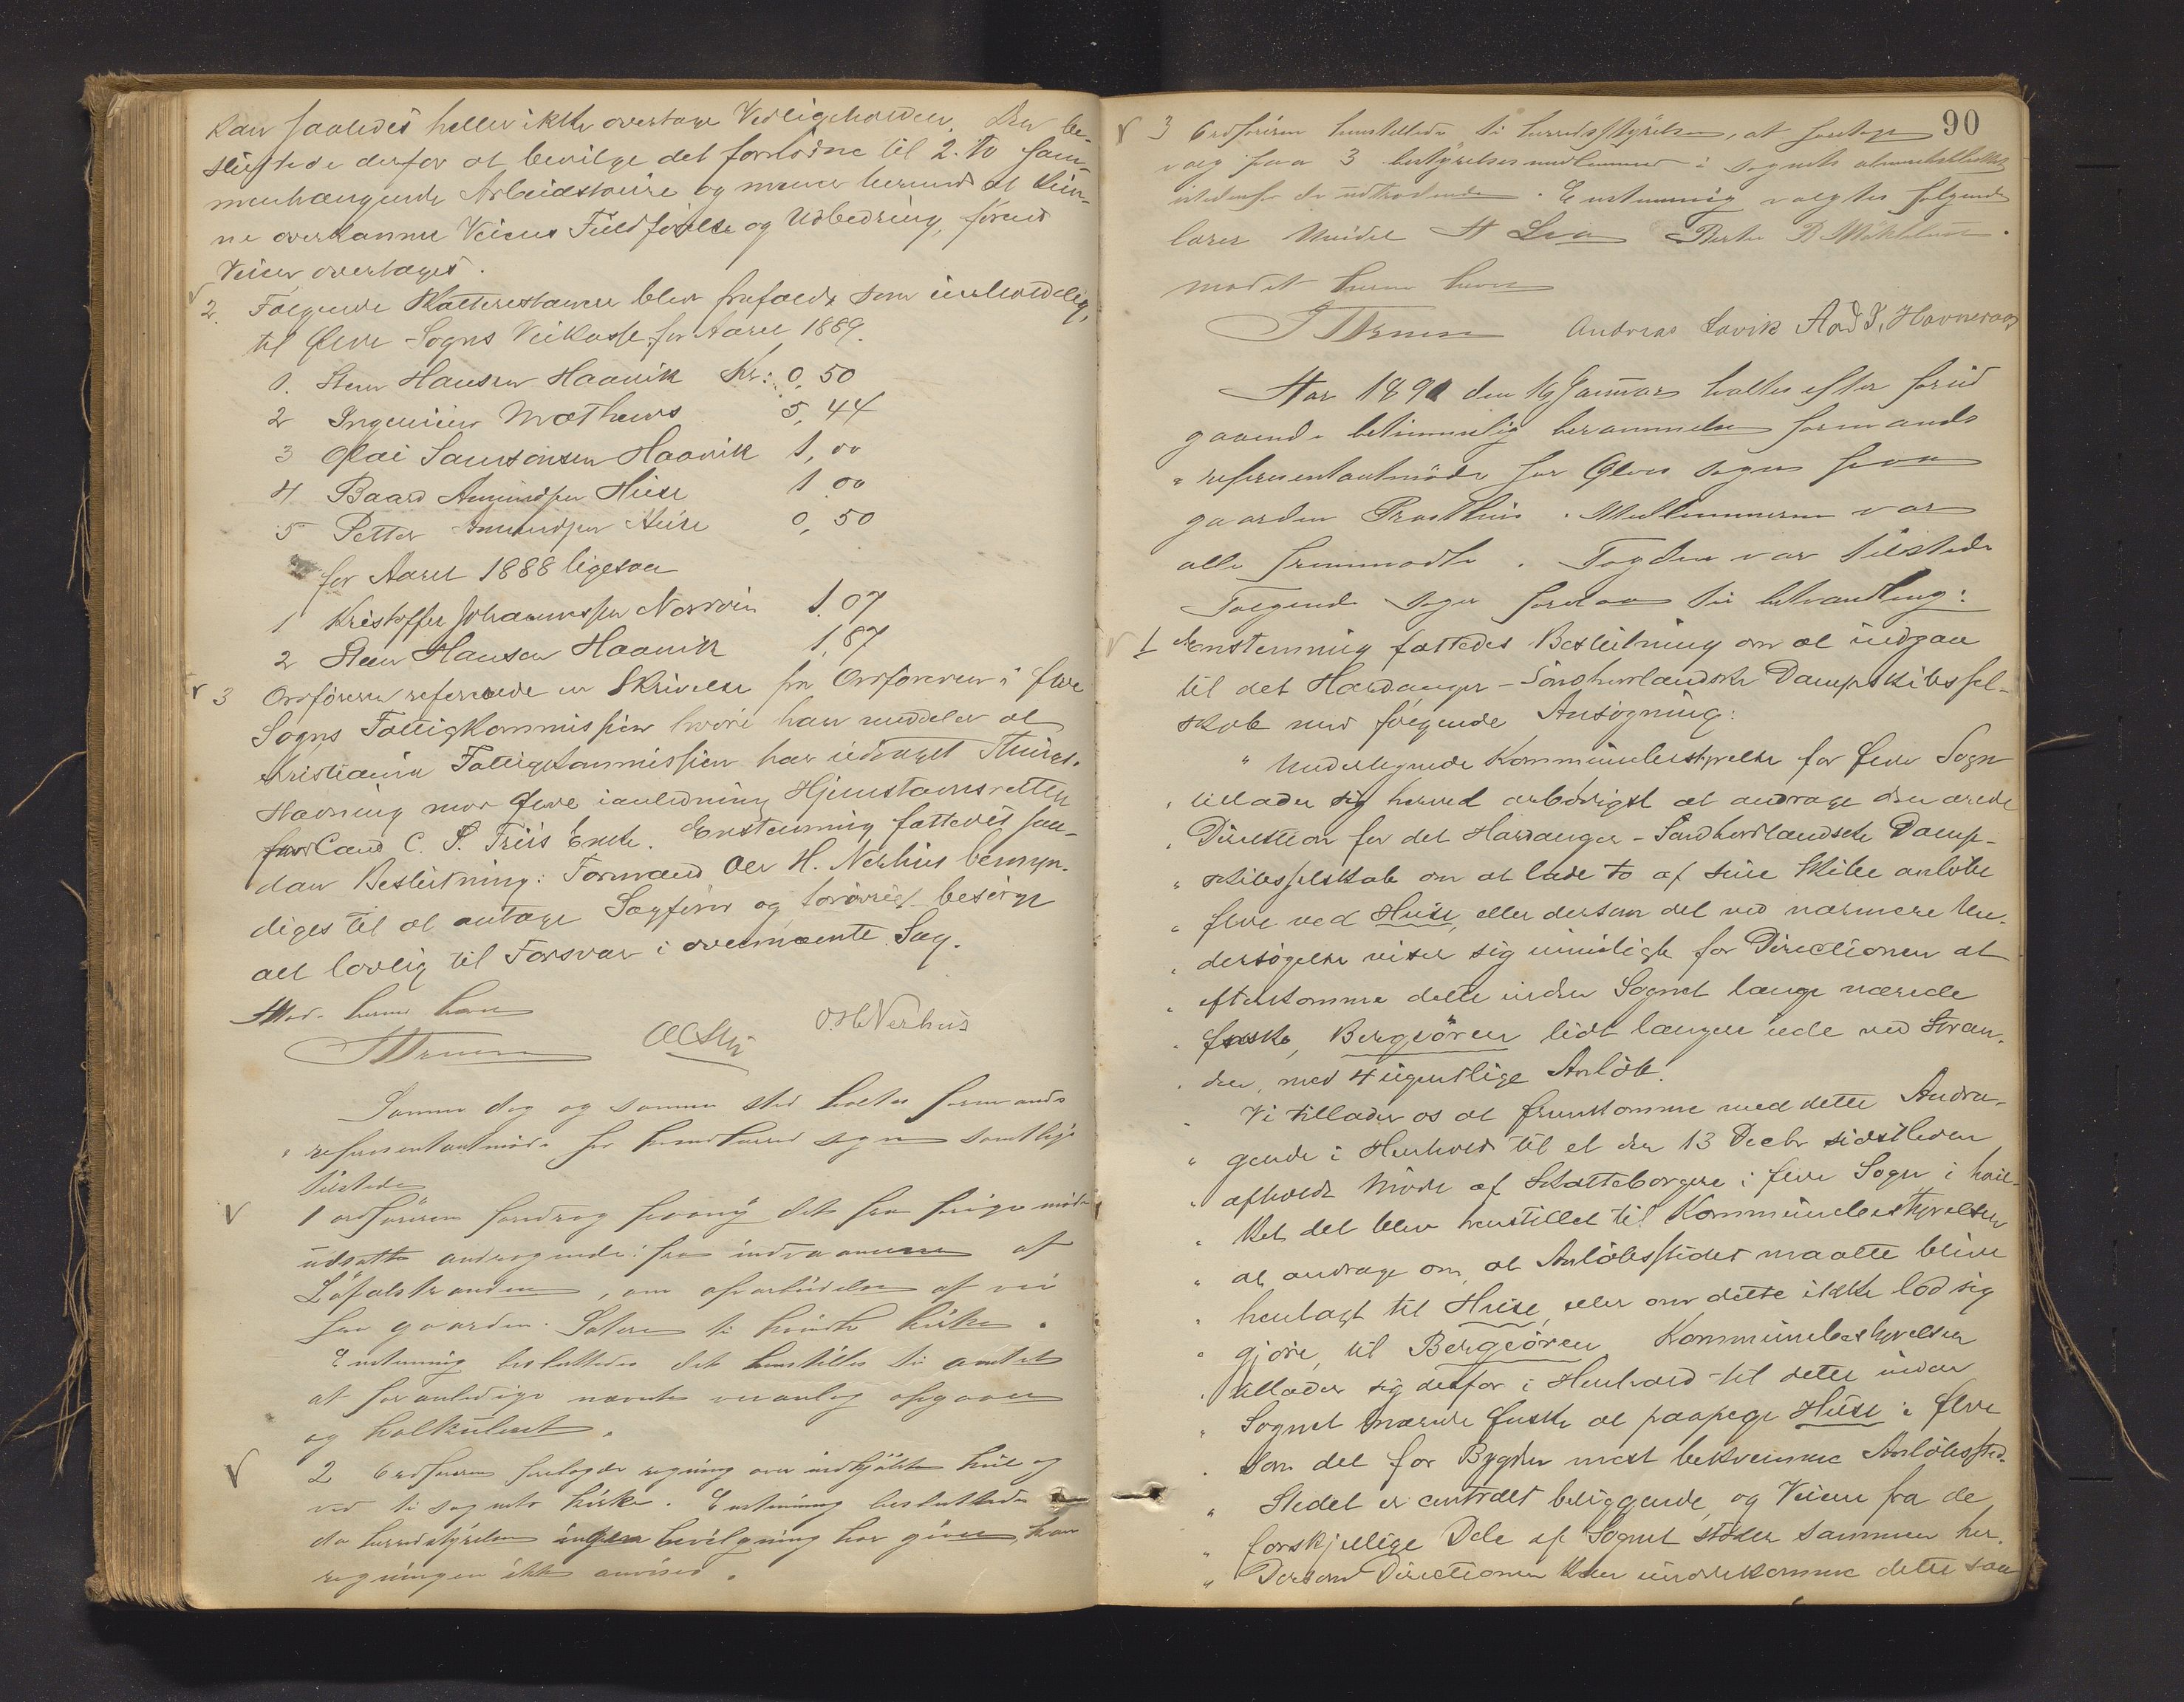 kan saaledes heller ikke overtage Vedligeholden. Den be-
sluttede derfor at bevilge det fornødne til 2. to sam-
menhængende Arbeidsveire og mener herunder at kun-
ne overkomme Veiens Fuldførelse og Udbedring, førend
Veien overtages.
2. Følgende Skatterestancer blev frafaldt som uerholdelig,
til Ølve Sogns Veikasse for Aaret 1889.
1. Sten Hansen Haavik Kr: 0,50
2 Ingeniør Mathews 5,44
3 Olai Samsonsen Haavik 1,00
4 Baard Amundsen Huse 1 00
5 Petter Amundsen Huse 0,50
for Aaret 1888 ligesaa
1 Kristoffer Johannessen Norvin 1.07
2 Sten Hansen Haavik 1,87
3 Ordføreren refererede en Skrivelse fra Ordføreren i Ølve
Sogns Fattigkommission hvori han meddeler at
Kristiania Fattigkommission har udtaget Things-
stævning mod Ølve i anledning Hjemstavnsretten
for Cand C. S. Friis Enke. Enstemmig fattedes saa-
dan Beslutning: Formand Ole H. Nerhus bemyn-
diges til at antage Sagfører og forøvrigt besørge
alt lovlig til Forsvar i ovennævnte Sag.
Mødet hermed hævet
O. H. Nerhus
Samme dag og samme sted holtes formands
" representantmøde for Kvindherred sogn samtlige
tilstede
1 ordføreren foredrog paany det fra forige møde
udsatte andragende: fra indvaanerne af
Løfalstranden, om oparbeidelse af vei
fra gaarden Sætre til kvinds kirke.
Enstemmig besluttedes det henstilles til amtet
at foranledige nævnte veianlæg opgaaet
og kalkuleret.
2 Ordføreren forelagde regning over indkjøbte kul og
ved til sognets kirke. Enstemmig besluttedes
da herredstyrelsen ingen bevilgning har givet, kan
regningen ikke anvises.
90
3 Ordføreren henstillede til herredsstyrelsen, at foretage
valg paa 3 bestyrelsesmedlemmer i sognets
istedenfor de udtrædende. Enstemmig valgtes følgende
lærer H Lea
mødet hermed hævet
Andreas Savik Aad J. Havneraas
Aar 1891 den 16 Januar holtes efter forud
gaaende betimmelig berammelse formands
" representantmøde for Ølves sogn paa
gaarden Prasthus. Medlemmerne var
alle fremmødte. Fogden var tilstede
Følgende sager forelaa til behandling:
1 Enstemmig fattedes Beslutning om at indgaa
til det Hardanger-Søndhorlandske Dampskibssel-
skab med følgende Ansøgning:
" Undertegnede Kommunebestyrelse for Ølve Sogn
" tillader sig herved ærbødigst at andrage den ærede
" Direction for det Hardanger-Søndhordlandske Damp-
" skibsselskab om at lade to af sine Skibe anløbe
" Ølve ved Huse, eller dersom det ved nærmere Un-
" dersøgelse viser sig umuligt for Directionen at
" efterkomme dette inden Sognet længe nærede
" Ønske, Bergsøren lidt længere ude ved Stran-
" den, med 4 ugentlige Anløb.
" Vi tillader os at fremkomme med dette Andra-
" gende i Henhold til et den 13 Decbr sidstleden
" afholdt Møde af Skatteborgere i Ølve Sogn i hvil-
" ket det blev henstillet til Kommunebestyrelsen
" at andrage om, at Anløbsstedet maatte blive
" henlagt til Huse, eller om dette ikke lod sig
" gjøre, til Bergsøren. Kommunebestyrelsen
" tillader sig derfor i Henhold til dette inden
" Sognet nærede Ønske at paapege Huse i Ølve
" som det for Bygden mest bekvemme Anløbssted.
" Stedet er centralt beliggende, og Veiene fra de
" forskjellige Dele af Sognet støder sammen her.
" Dersom Directionen kan imødekomme dette saa